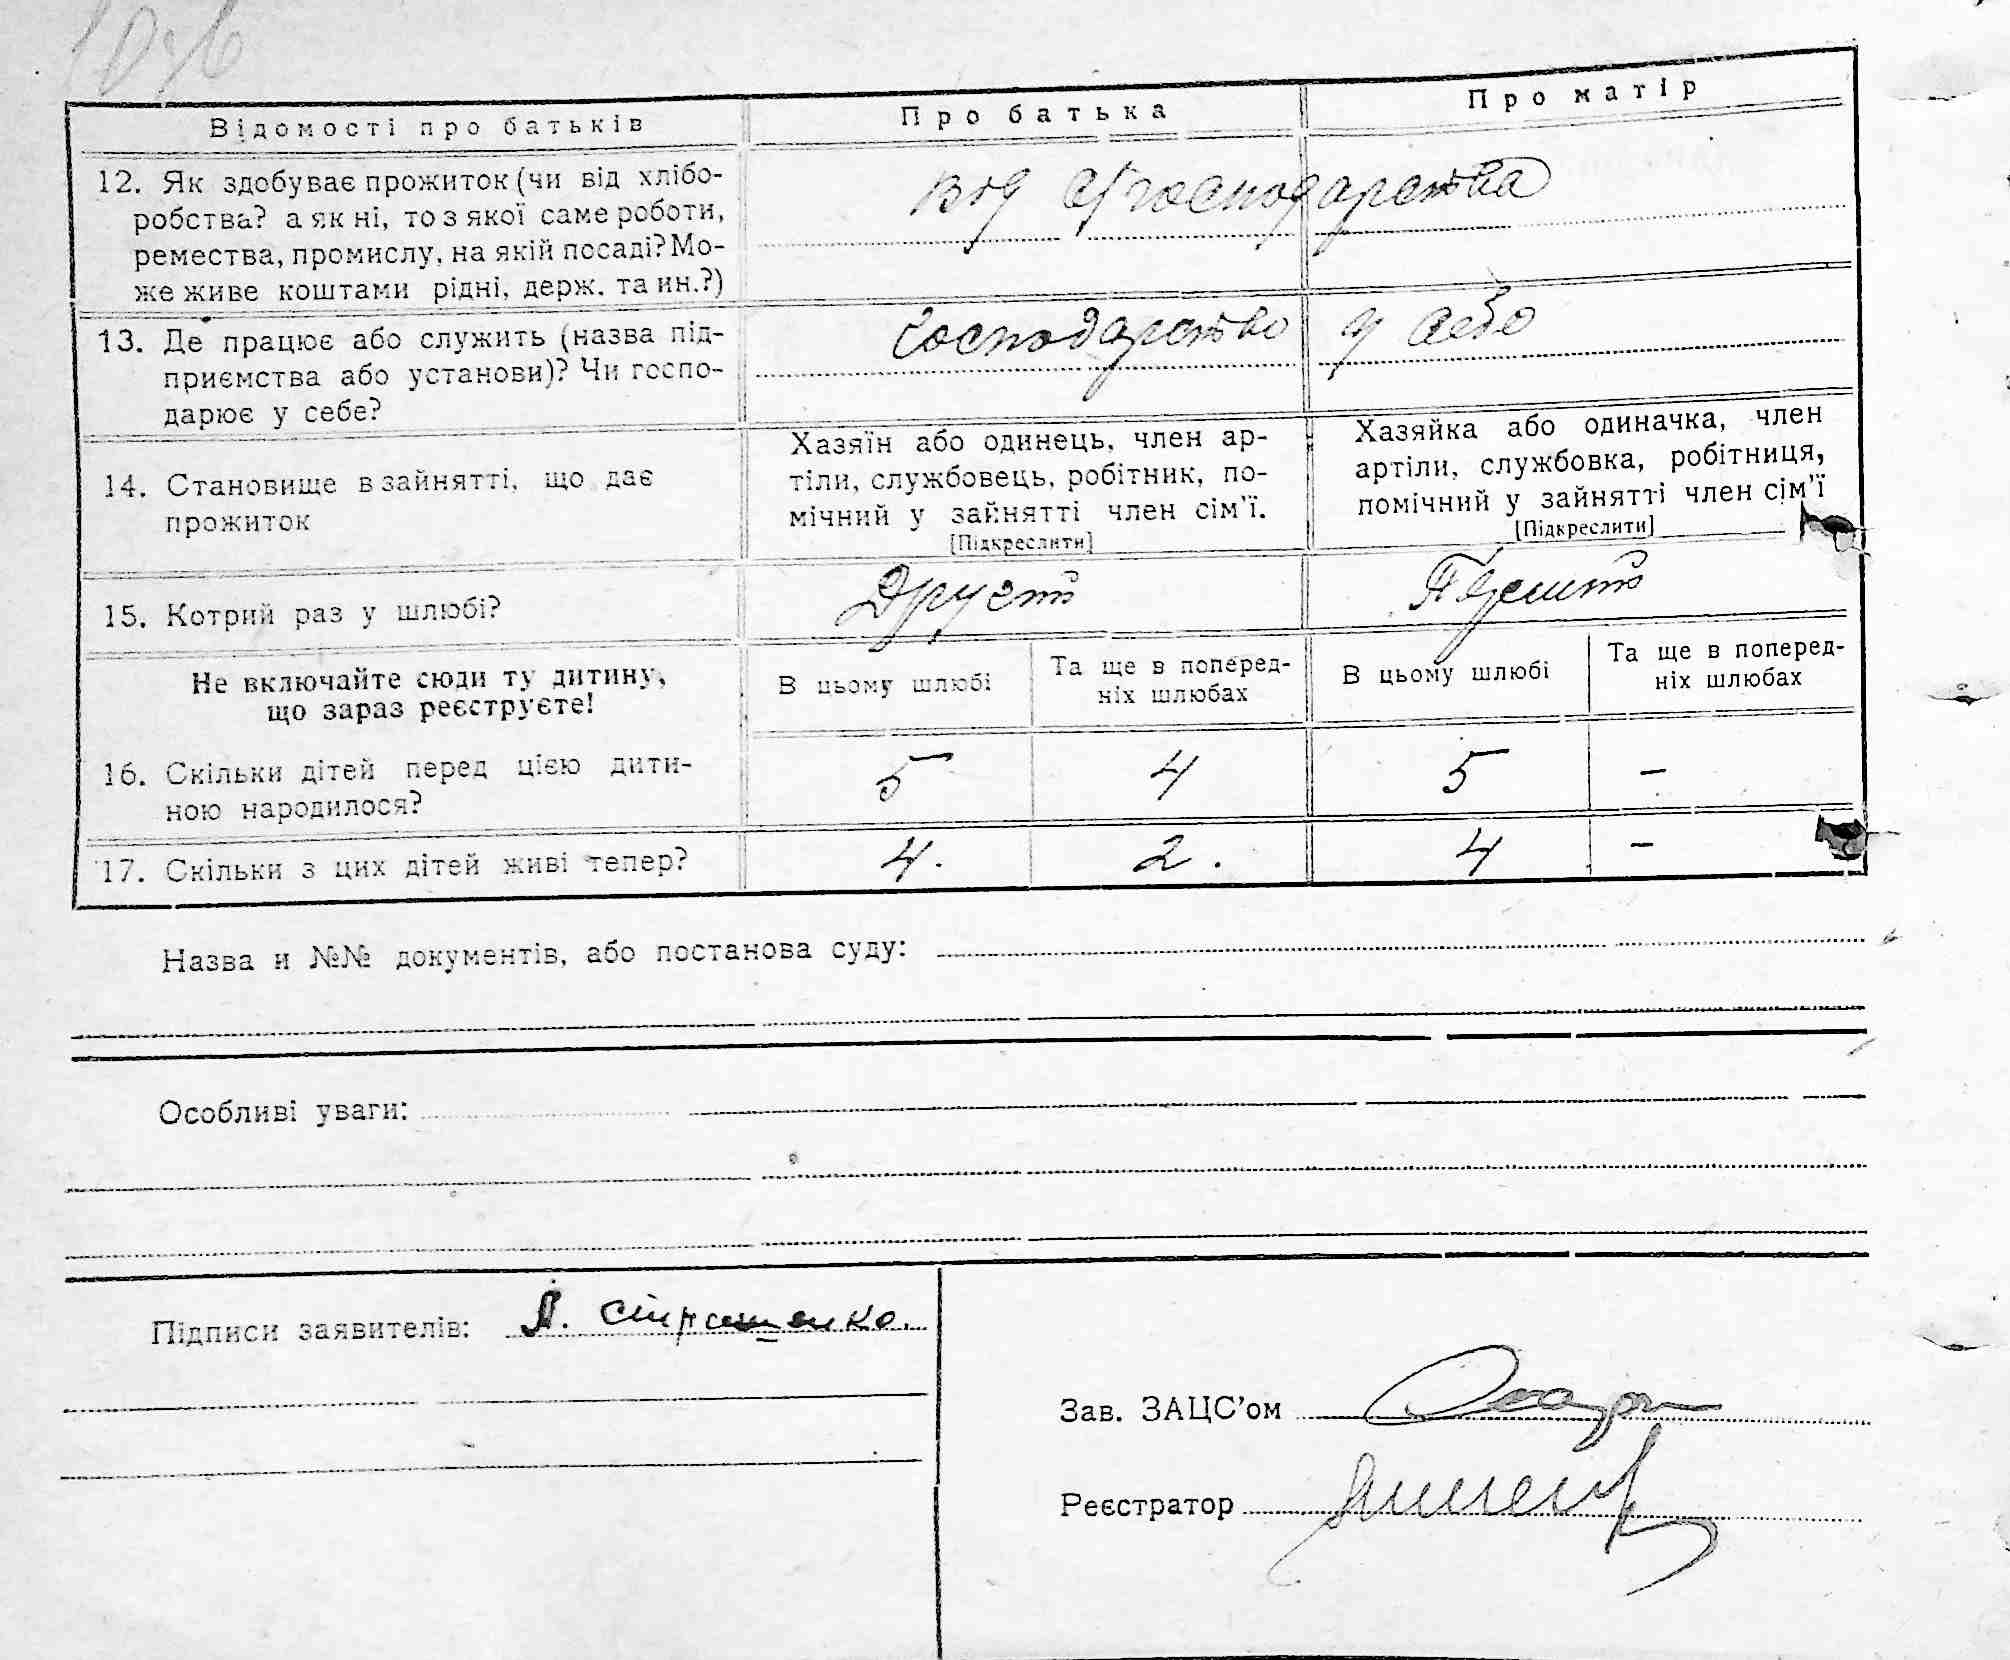 Відомості про батьків
Про батька
Про матір
12. Як здобуває прожиток (чи від хлібо-
робства? а як ні, то з якої саме роботи,
ремества, промислу, на якій посаді? Мо-
же живе коштами рідні, держ. та ин.?)
від с/господарства
13. Де працює або служить (назва під-
приємства або установи)? Чи госпо-
дарює у себе?
Господарство у себе
14. Становище в зайнятті, що дає
прожиток
Хазяїн або одинець, член ар-
тіли, службовець, робітник, по-
мічний у зайнятті член сім'ї.
[Підкреслити]
Хазяйка або одиначка, член
артіли, службовка, робітниця,
помічний у зайнятті член сім'ї
[Підкреслити]
15. Котрий раз у шлюбі?
Не включайте сюди ту дитину,
що зараз реєструєте!
В цьому шлюбі
Та ще в поперед-
ніх шлюбах
В цьому шлюбі
Та ще в поперед-
ніх шлюбах
16. Скільки дітей перед цією дити-
ною народилося?
5 4 5 -
17. Скільки з цих дітей живі тепер?
4. 2. 4 -
Назва и №№ документів, або постанова суду:
Особливі уваги:
Підписи заявителів:
Зав. ЗАЦС'ом
Реєстратор